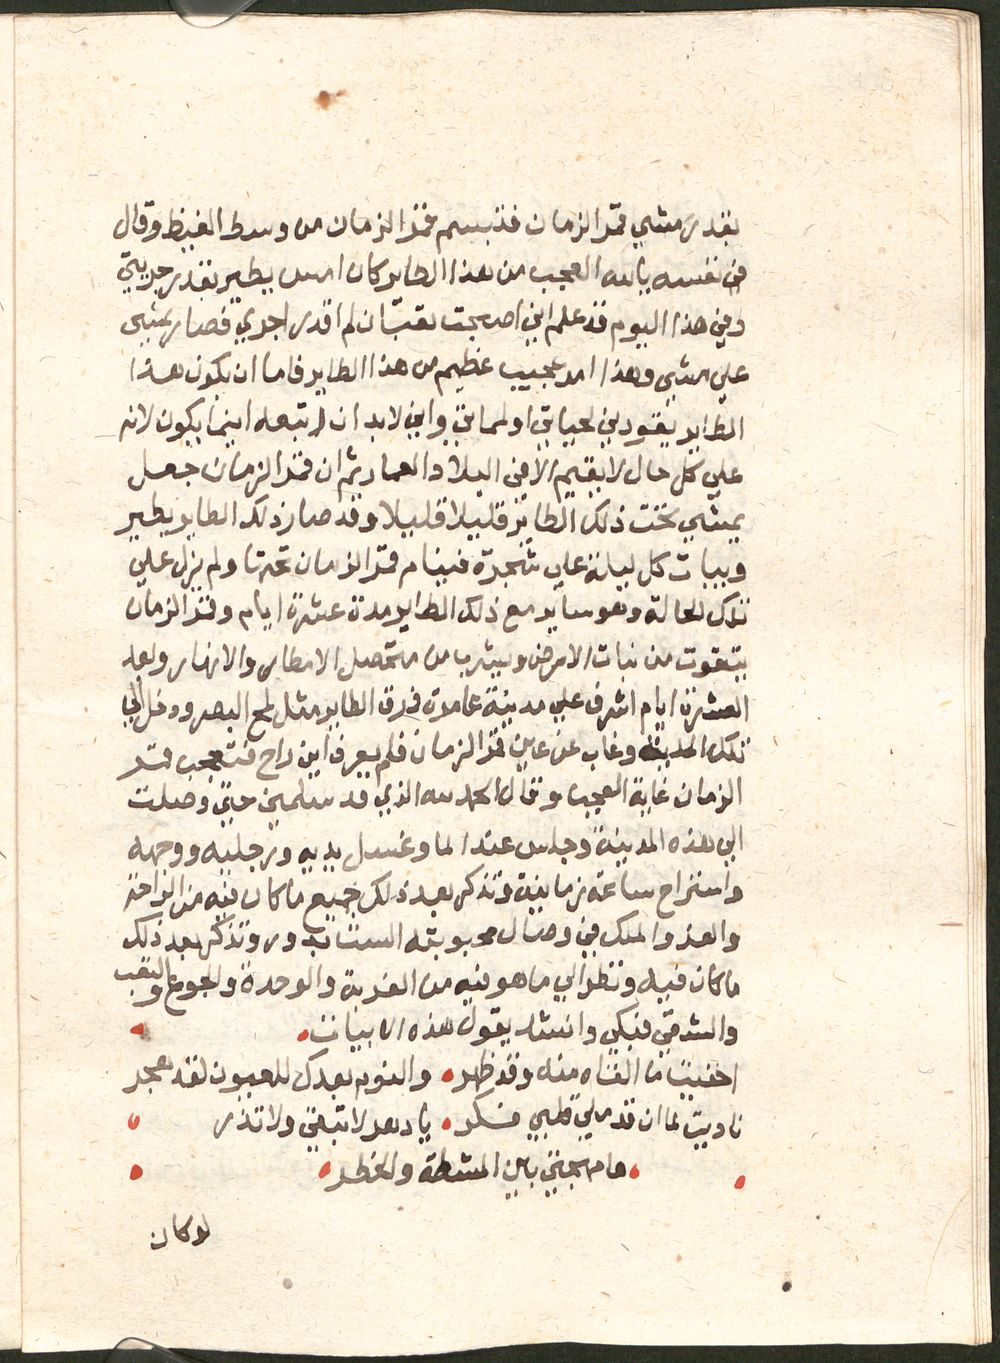 بقدر مشي قمر الزمان فتبسم قمر الزمان من وسط الغيظ وقال
في نفسه يالله العجب من هذا الطاير كان امس يطير بقدر جريتي
وفي هذا اليوم قد علم اني اصبحت تعبان لم اقدر اجري فصار يمشي
علي مشي وهذا امر عجيب عظيم من هذا الطاير فاما ان يكون هذا
الطاير يقودني لحياتي او لمماتي واني لابد ان اتبعه اينما يكون لانه
علي كل حال لا يقيم الا في البلاد والعمار ثم ان قمر الزمان جعل
يمشي تحت ذلك الطاير قليلا قليلا وقد صار ذلك الطاير يطير
ويبات كل ليلة علي شجرة فينام قمر الزمان تحتها ولم يزل علي
تلك الحالة وهو ساير مع ذلك الطاير مدة عشرة ايام وقمر الزمان
يتقوت من نبات الارض ويشرب من متحصل الامطار والانهار وبعد
العشرة ايام اشرف علي مدينة عامرة فمرق الطاير مثل لمح البصر ودخل الي
تلك المدينة وغاب عن عين قمر الزمان فلم يعرف اين راح فتعجب قمر
الزمان غاية العجب وقال الحمد لله الذي قد سلمني حتي وصلت
الي هذه المدينة وجلس عند الما وغسل يديه ورجليه ووجهه
واستراح ساعة زمانية وتذكر بعد ذلك جميع ما كان فيه من الراحة
والعز والملك في وصال محبوبته الست بدور وتذكر بعد ذلك
ما كان فيه ونظر الي ما هو فيه من الغربة والوحدة والجوع والتعب
والشقي فبكي وانشد يقول هذه الابيات
اخفيت ما القاه منه وقد ظهر والنوم بعدك للعيون لقد هجر
ناديت لما ان قد ملي قلبي فكر يا دهر لا تبقي ولا تذر
ها مهجتي بين المشطة والخطر
لو كان